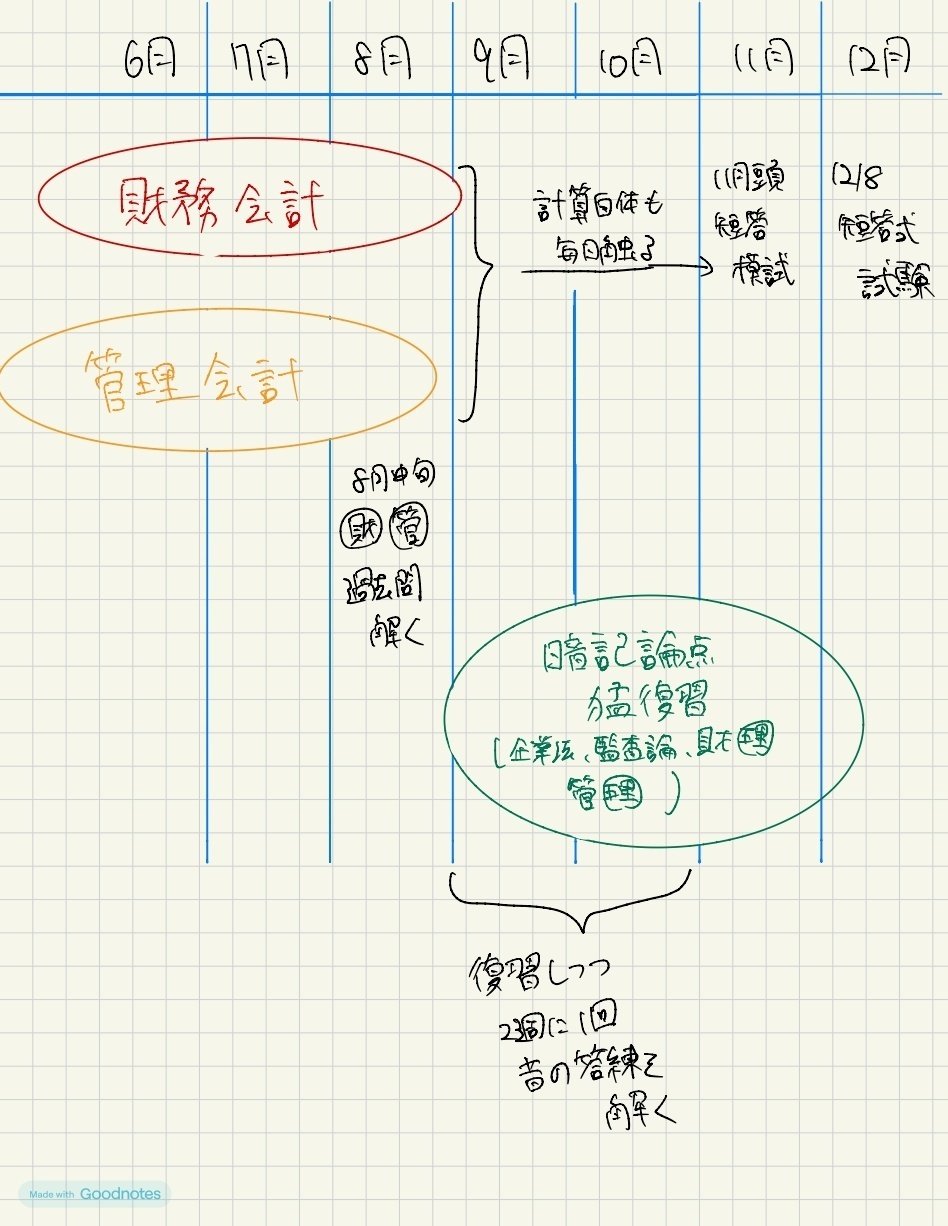 6月 7月 8月 9月 10月 11月 12月
財務会計
計算自体も
毎日触る
11月頭
短答
模試
12/8
短答式
試験
管理会計
8月中旬
財 管
過去問
解く
暗記論点
猛復習
(企業法、監査論、財理
管理)
復習しつつ
2週に1回
昔の答練を
解く
Made with Goodnotes